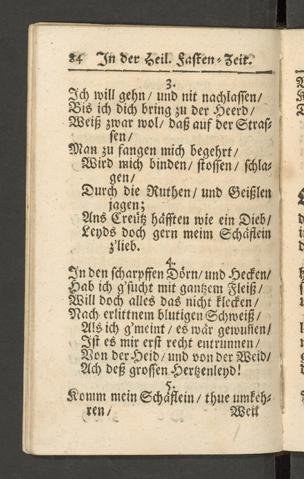 84 In der Heil. Fasten-Zeit.
3.
Ich will gehn/ und nit nachlassen/
Bis ich dich bring zu der Heerd/
Weiß zwar wol/ daß auf der Stras-
sen/
Man zu fangen mich begehrt/
Wird mich binden/ stossen/ schla-
gen/
Durch die Ruthen/ und Geißlen
jagen;
Ans Creutz häfften wie ein Dieb/
Leyds doch gern meim Schäflein
z'lieb.
4.
In den scharpffen Dörn/ und Hecken/
Hab ich g'sucht mit gantzem Fleiß/
Will doch alles das nicht klecken/
Nach erlittnem blutigen Schweiß/
Als ich g'meint/ es wär gewunnen/
Ist es mir erst recht entrunnen/
Von der Heid/ und von der Weid/
Ach deß grossen Hertzenleyd!
5.
Komm mein Schäflein/ thue umkeh-
ren/ Weil